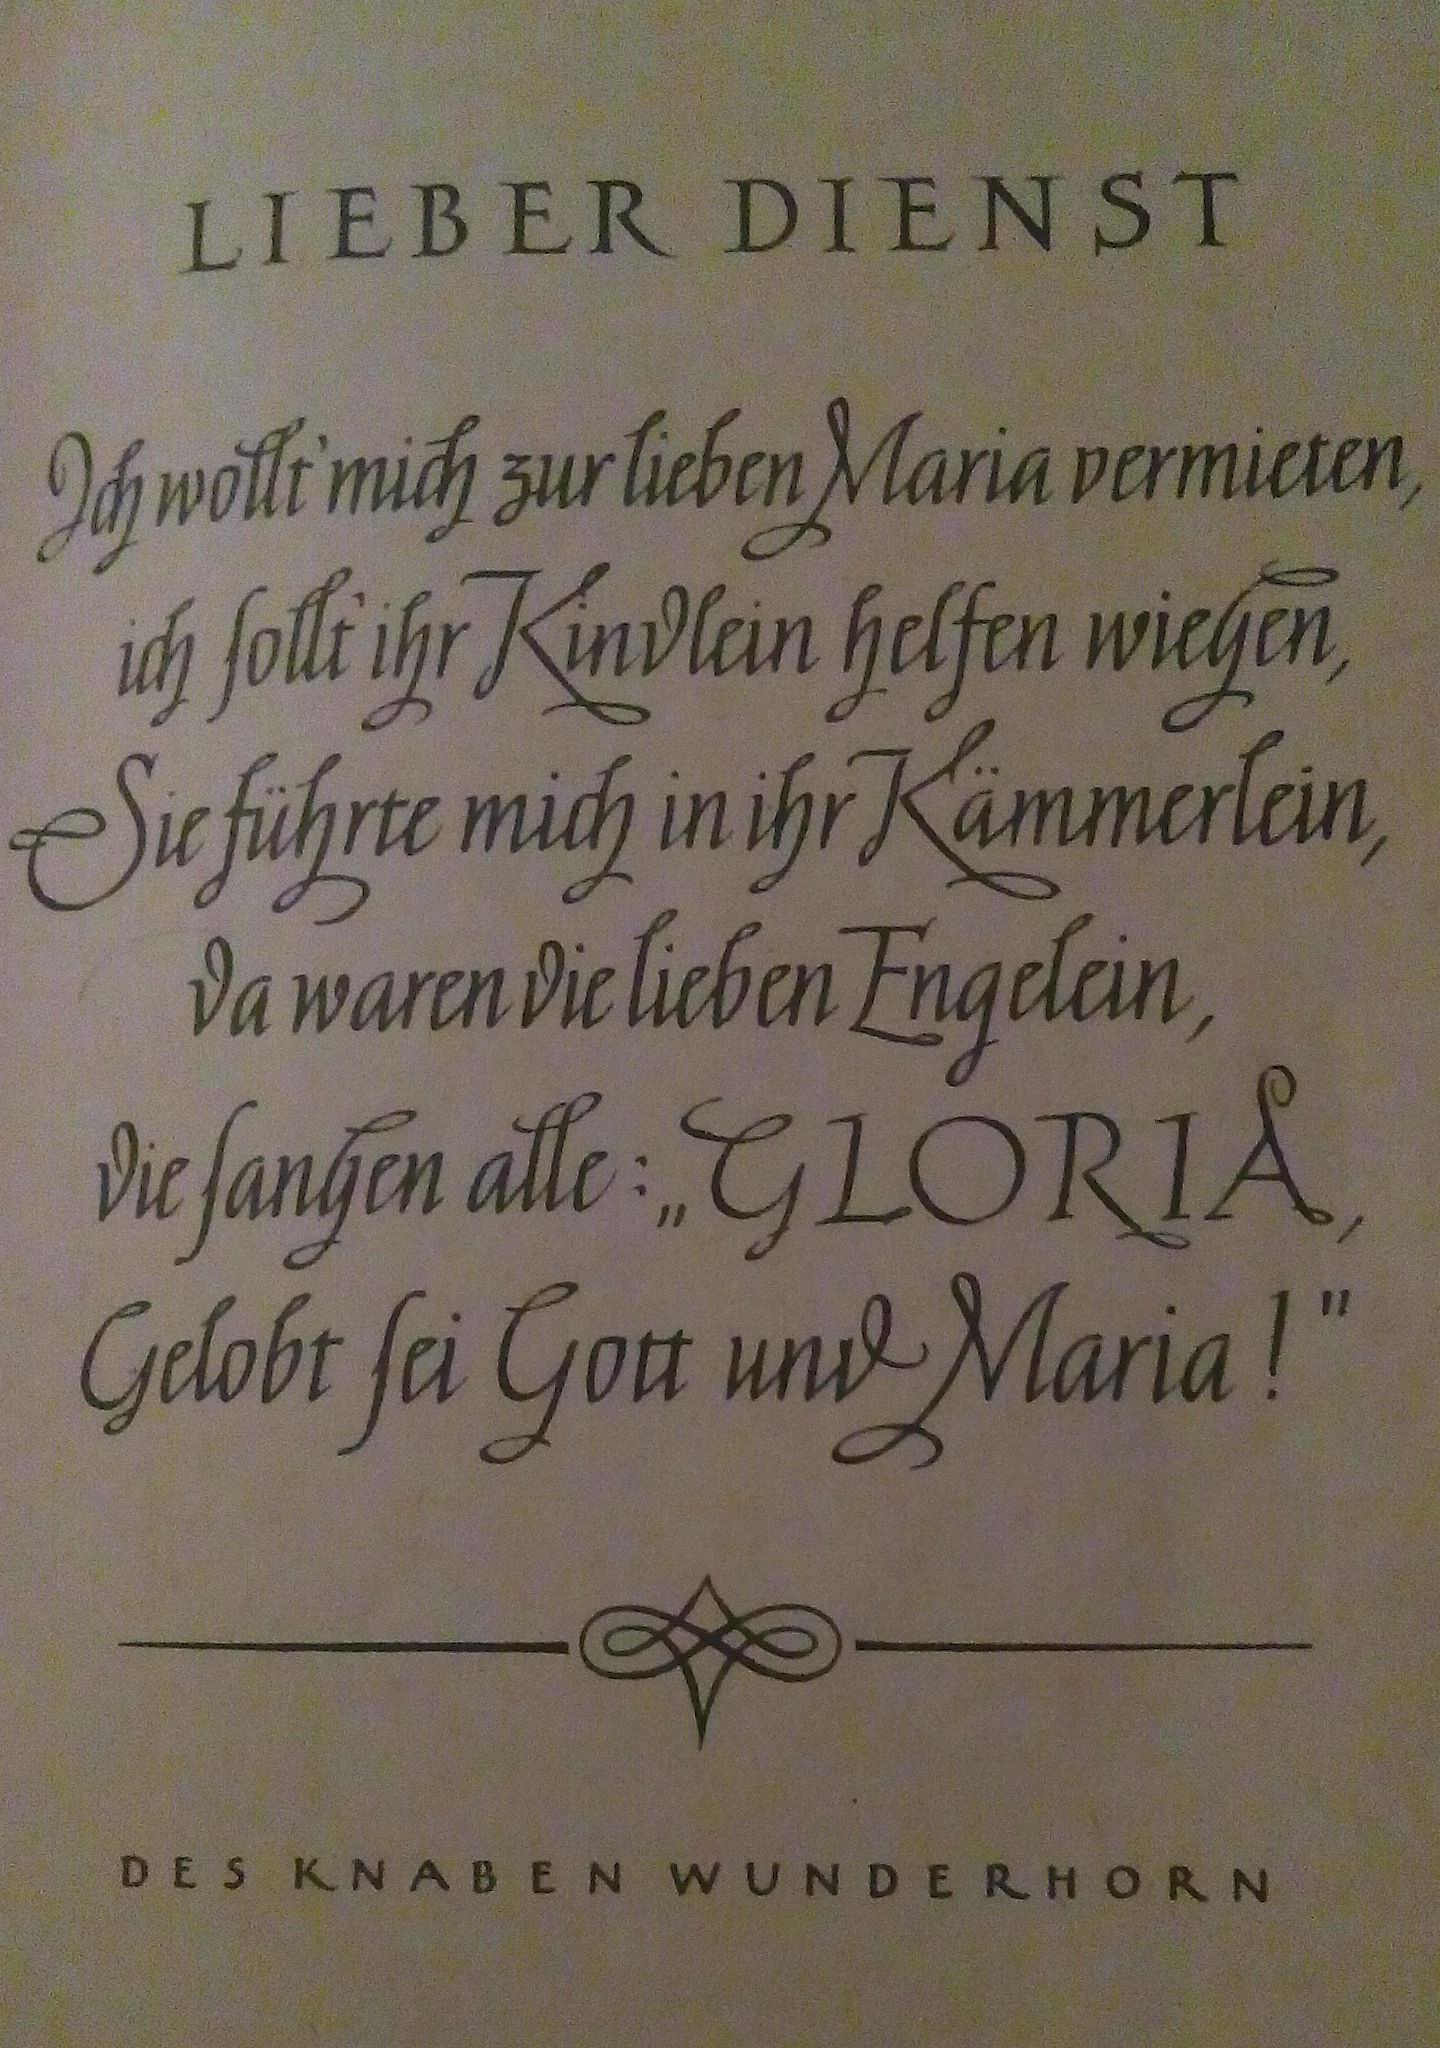 LIEBER DIENST
Ich wollt' mich zur lieben Maria vermieten,
ich ſollt' ihr Kindlein helfen wiegen,
Sie führte mich in ihr Kämmerlein,
da waren die lieben Engelein,
die ſangen alle: „GLORIA,
Gelobt ſei Gott und Maria!"
DES KNABEN WUNDERHORN